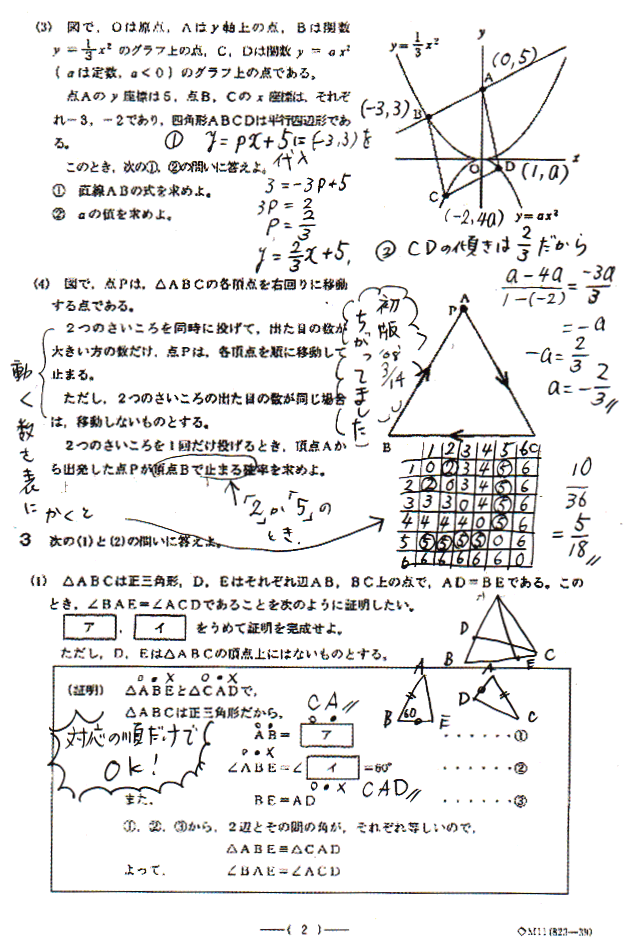 (3) 図で,Oは原点,Aはy軸上の点,Bは関数
y=1/3x² のグラフ上の点,C,Dは関数 y=ax²
(aは定数,a<0)のグラフ上の点である。
点Aのy座標は5,点B,Cのx座標は,それぞ
れ-3,-2であり,四角形ABCDは平行四辺形であ
る。
① y=px+5に(-3,3)を
代入
このとき,次の①,②の問いに答えよ。
① 直線ABの式を求めよ。
② aの値を求めよ。
3=-3p+5
3p=2
p=2/3
y=2/3x+5
y=1/3x²
y
(0,5)
A
(-3,3)
B
O
x
D
(1,a)
C
(-2,4a)
y=ax²
② CDの傾きは2/3だから
a-4a/1-(-2)=-3a/3
=-a
-a=2/3
a=-2/3
(4) 図で,点Pは,△ABCの各頂点を右回りに移動
する点である。
2つのさいころを同時に投げて,出た目の数が
大きい方の数だけ,点Pは,各頂点を順に移動して
止まる。
ただし,2つのさいころの出た目の数が同じ場合
は,移動しないものとする。
2つのさいころを1回だけ投げるとき,頂点Aか
ら出発した点Pが頂点Bで止まる確率を求めよ。
動く数を表に
かくと
「2」か「5」の
とき.
初版
'08
3/14
ちがってました
P A
B
C
1 2 3 4 5 6
1 0 2 3 4 5 6
2 2 0 3 4 5 6
3 3 3 0 4 5 6
4 4 4 4 0 5 6
5 5 5 5 5 0 6
6 6 6 6 6 6 0
10/36
=5/18
3 次の(1)と(2)の問いに答えよ。
(1) △ABCは正三角形,D,Eはそれぞれ辺AB,BC上の点で,AD=BEである。この
とき,∠BAE=∠ACDであることを次のように証明したい。
ア , イ をうめて証明を完成せよ。
ただし,D,Eは△ABCの頂点上にはないものとする。
D
B
E
C
(証明) △ABEと△CADで,
△ABCは正三角形だから,
CA
AB= ア ······①
∠ABE=∠ イ =60° ······②
CAD
また, BE=AD ······③
対応の順だけで
OK!
A
B
60
E
A
D
C
①,②,③から,2辺とその間の角が,それぞれ等しいので,
△ABE≡△CAD
よって, ∠BAE=∠ACD
―( 2 )―
◇M11(823―39)